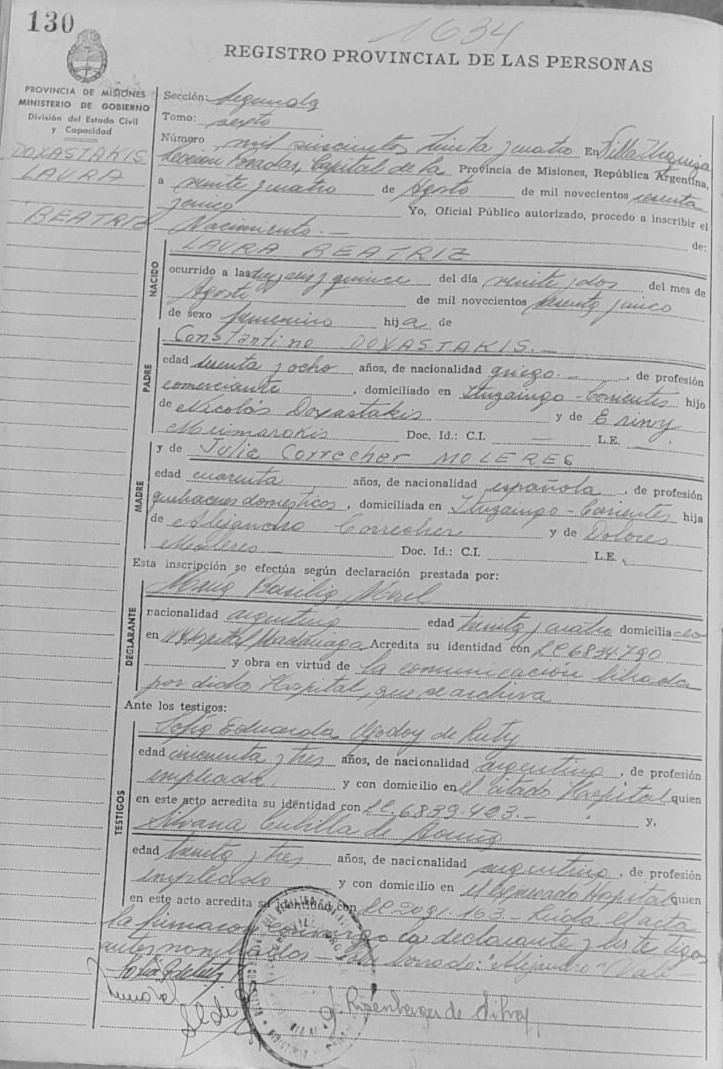 130
1634
REGISTRO PROVINCIAL DE LAS PERSONAS
PROVINCIA DE MISIONES
MINISTERIO DE GOBIERNO
División del Estado Civil
y Capacidad
DOXASTAKIS
LAURA
BEATRIZ
Sección: Segunda
Tomo: sexto
Número mil seiscientos treinta y cuatro En Villa Urquiza
Posadas, Capital de la Provincia de Misiones, República Argentina,
a veinte y cuatro de Agosto de mil novecientos sesenta
y cinco Yo, Oficial Público autorizado, procedo a inscribir el
Nacimiento.— de:
NACIDO
LAURA BEATRIZ
ocurrido a las diez y seis y quince del día veinte y dos del mes de
Agosto de mil novecientos sesenta y cinco
de sexo femenino hija de
PADRE
Constantino DOXASTAKIS.—
edad y ocho años, de nacionalidad griego.— , de profesión
comerciante , domiciliado en Ituzaingo - Corrientes hijo
de Nicolás Doxastakis y de Eriny
Meimarakis Doc. Id.: C.I. — L.E. —
MADRE
y de Julia Correcher MOLERES
edad cuarenta años, de nacionalidad española , de profesión
quehaceres domesticos , domiciliada en Ituzaingo - Corrientes hija
de Alejandro Correcher y de Dolores
Moleres Doc. Id.: C.I. L.E.
Esta inscripción se efectúa según declaración prestada por:
DECLARANTE
Basilia
nacionalidad argentina edad treinta y cuatro domiciliado
en Hospital Madariaga Acredita su identidad con LC 6.834.790
y obra en virtud de la comunicación librada
por dicho Hospital, que se archiva
Ante los testigos:
TESTIGOS
Sofia Eduarda Godoy de
edad cincuenta y tres años, de nacionalidad argentina , de profesión
empleada y con domicilio en el citado Hospital quien
en este acto acredita su identidad con LC. 6839.423.— y,
Silvana Cubilla de
edad treinta y tres años, de nacionalidad argentina , de profesión
empleada y con domicilio en el Hospital quien
en este acto acredita su identidad con LC 2091.163 - Leida el acta
la firmaron conmigo la declarante y los testigos
antes nombrados - borrado: "Alejandro" Vale
Rosenberger de Silva